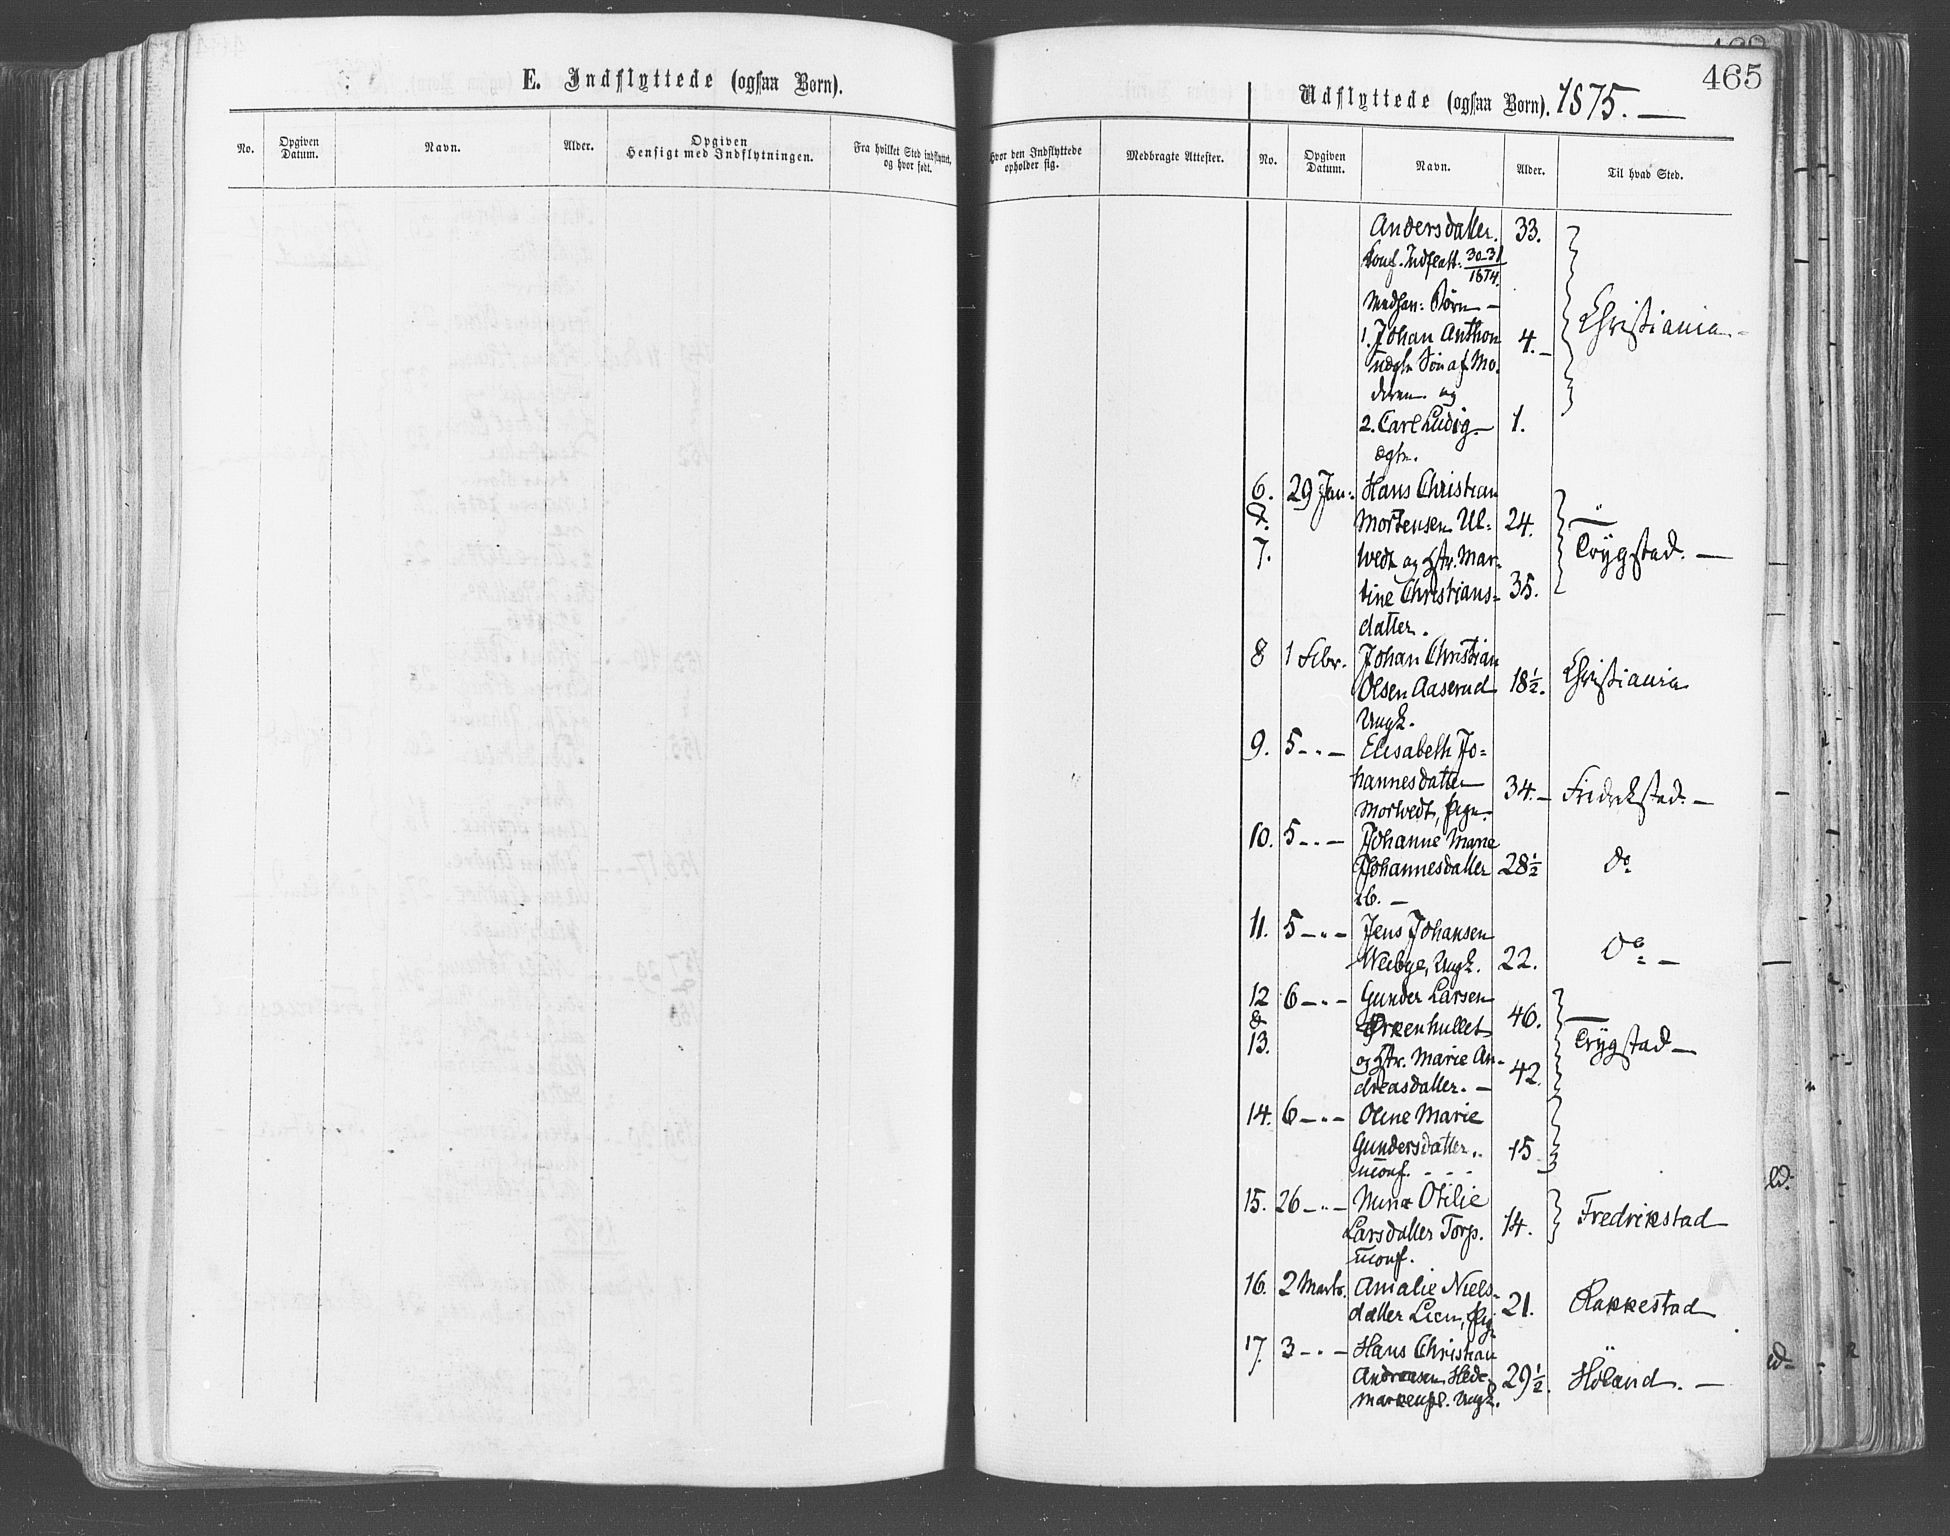 E. Indflyttede (ogsaa Børn).
No. Opgiven Datum. Navn. Alder. Opgiven Hensigt med Indflytningen. Fra hvilket Sted indflyttet, og hvor født.
465
Udflyttede (ogsaa Børn). 1875. —
Hvor den Indflyttede opholder sig. Medbragte Attester. No. Opgiven Datum. Navn. Alder. Til hvad Sted.
Andersdatter. 33.
30-31
1874.
Børn —
1. Johan Anthon 4. — Christiania. -
Søn af Mo-
deren og
2. Carl Ludvig — 1.
ægte.
6. 29 Jan: Hans Christian
& Mortensen Ul- 24.
7. vedt og Hstr. Mar- Trygstad. —
tine Christians- 35.
datter.
8 1 Febr. Johan Christian
Olsen Aaserud 18½. Christiania
Ungk.
9. 5 - " - Elisabeth Jo-
hannesdatter 34. — Fredrikstad. —
Morvedt, Pige.
10. 5 - " - Johanne Marie
Johannesdatter 28½ do
ib. —
11. 5 - " - Jens Johansen
Ungk. 22. Do —
12 6 - " - Gunder Larsen
& 46.
13. og Hstr. Marie An- Trygstad —
dreasdatter. — 42.
14. 6 - " - Oline Marie
Gundersdatter 15
uconf. - - -
15. 26 - " - Mina Otilie
Larsdatter Torp. 14. Fredrikstad
uconf.
16. 2 Marts. Amalie Niels-
datter Lien, Pige 21. Rakkestad
17. 3 - " - Hans Christian
Andreasen Hede- 29½. Höland. —
markenpl. Ungk.